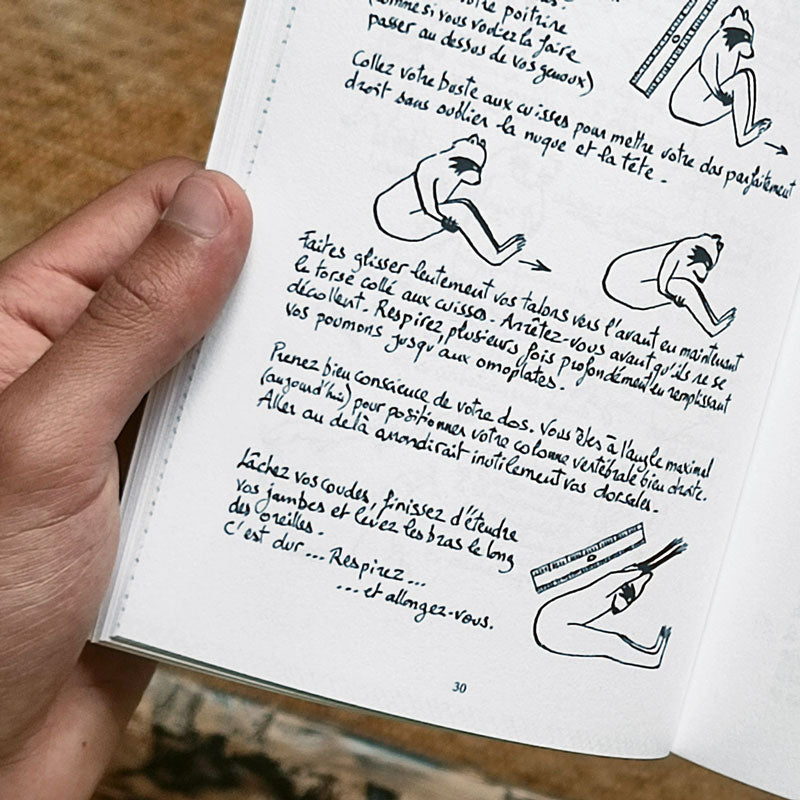 votre poitrine
(comme si vous vouliez la faire
passer au dessus de vos genoux)
Collez votre buste aux cuisses pour mettre votre dos parfaitement
droit sans oublier la nuque et la tête.
Faites glisser lentement vos talons vers l'avant en maintenant
le torse collé aux cuisses. Arrêtez-vous avant qu'ils ne se
décollent. Respirez plusieurs fois profondément en remplissant
vos poumons jusqu'aux omoplates.
Prenez bien conscience de votre dos. Vous êtes à l'angle maximel
(aujourd'hui) pour positionner votre colonne vertébrale bien droite.
Aller au delà arrondirait inutilement vos dorsales.
Lâchez vos coudes, finissez d'étendre
vos jambes et levez les bras le long
des oreilles.
C'est dur... Respirez...
...et allongez-vous.
30